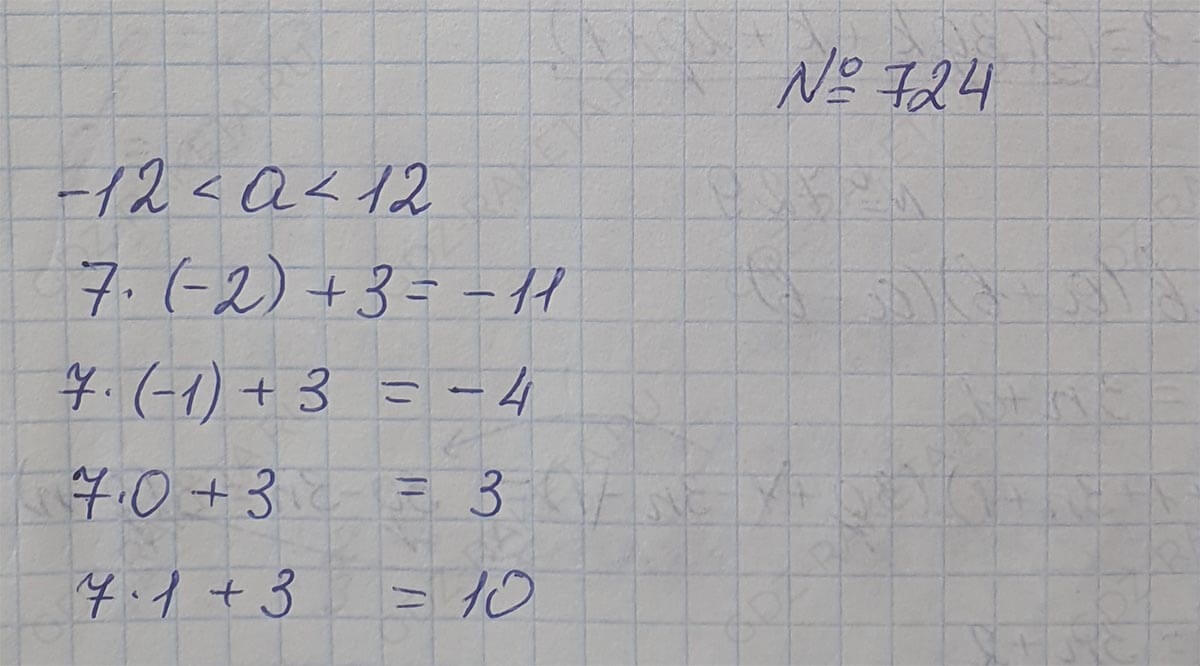 № 724
-12 < a < 12
7 · (-2) + 3 = -11
7 · (-1) + 3 = -4
7 · 0 + 3 = 3
7 · 1 + 3 = 10